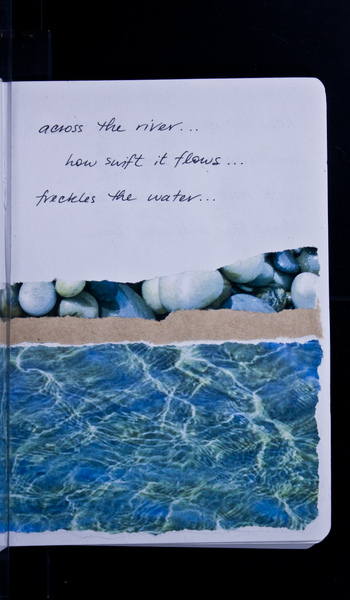 across the river...
how swift it flows...
freckles the water...